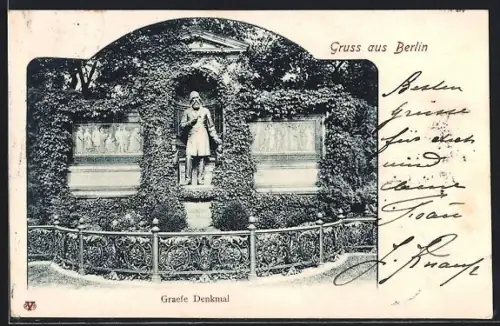 Gruss aus Berlin
Besten
Grüsse
für euch
und
deine
J. Knauf
Graefe Denkmal